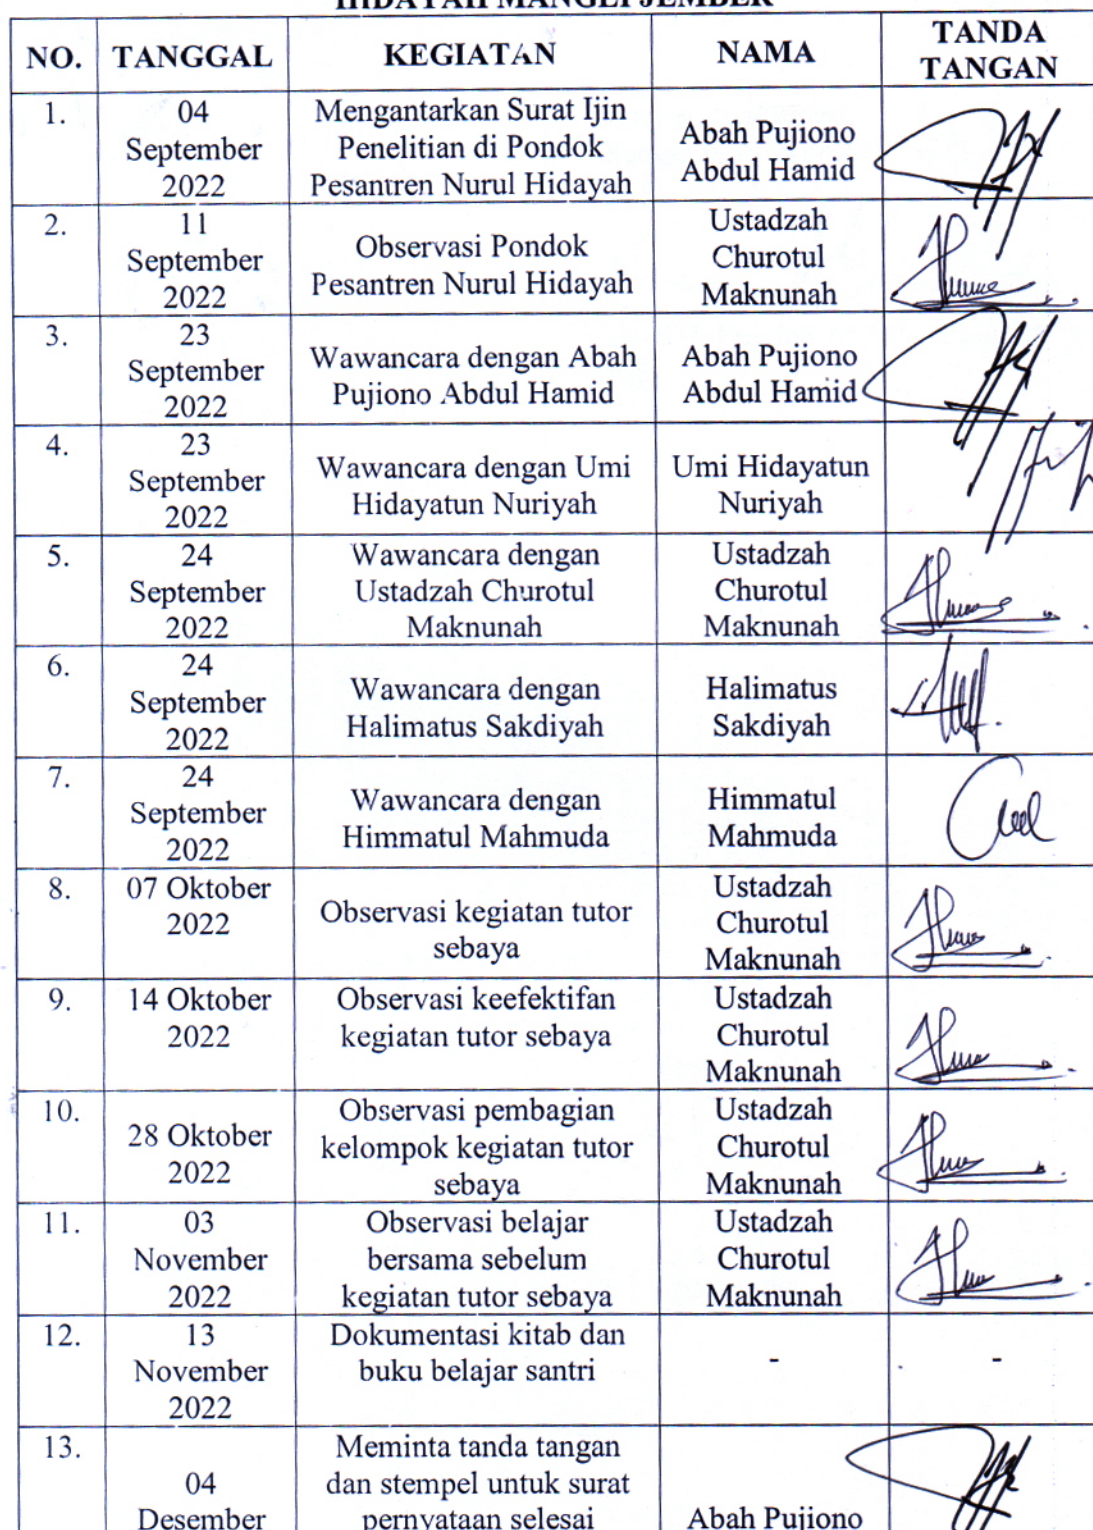 HIDAYAH MANGLI JEMBER
NO. TANGGAL KEGIATAN NAMA TANDA TANGAN
1. 04 September 2022 Mengantarkan Surat Ijin Penelitian di Pondok Pesantren Nurul Hidayah Abah Pujiono Abdul Hamid
2. 11 September 2022 Observasi Pondok Pesantren Nurul Hidayah Ustadzah Churotul Maknunah
3. 23 September 2022 Wawancara dengan Abah Pujiono Abdul Hamid Abah Pujiono Abdul Hamid
4. 23 September 2022 Wawancara dengan Umi Hidayatun Nuriyah Umi Hidayatun Nuriyah
5. 24 September 2022 Wawancara dengan Ustadzah Churotul Maknunah Ustadzah Churotul Maknunah
6. 24 September 2022 Wawancara dengan Halimatus Sakdiyah Halimatus Sakdiyah
7. 24 September 2022 Wawancara dengan Himmatul Mahmuda Himmatul Mahmuda
8. 07 Oktober 2022 Observasi kegiatan tutor sebaya Ustadzah Churotul Maknunah
9. 14 Oktober 2022 Observasi keefektifan kegiatan tutor sebaya Ustadzah Churotul Maknunah
10. 28 Oktober 2022 Observasi pembagian kelompok kegiatan tutor sebaya Ustadzah Churotul Maknunah
11. 03 November 2022 Observasi belajar bersama sebelum kegiatan tutor sebaya Ustadzah Churotul Maknunah
12. 13 November 2022 Dokumentasi kitab dan buku belajar santri - -
13. 04 Desember Meminta tanda tangan dan stempel untuk surat pernyataan selesai Abah Pujiono